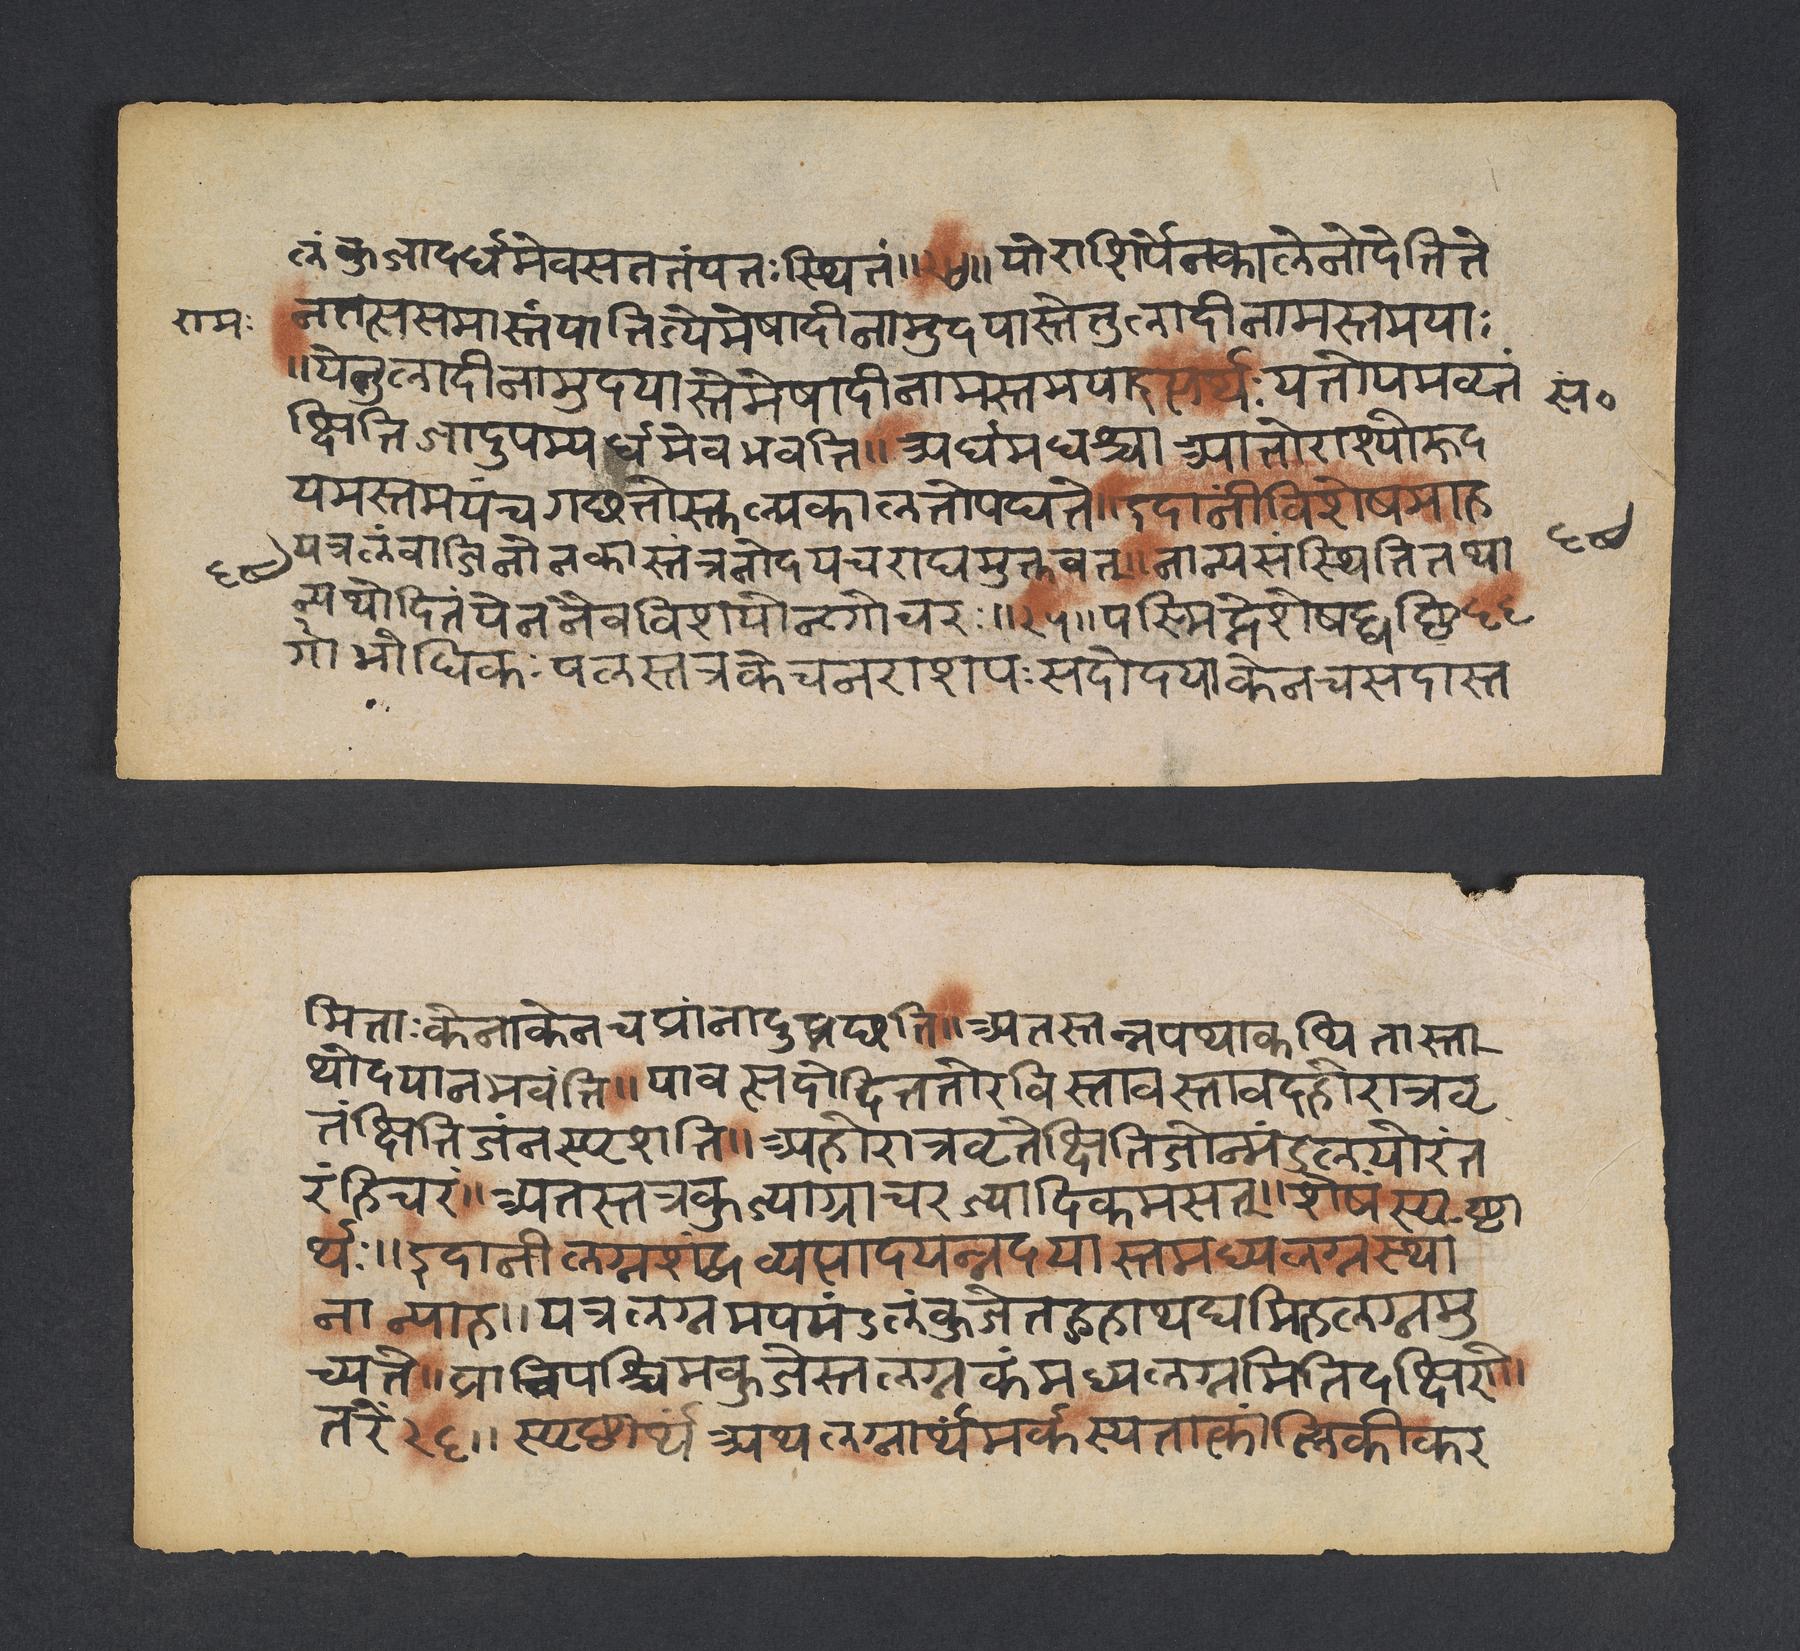 लं कुजादर्धमेवसततंपतःस्थितं॥२४॥योराशिर्येनकालेनोदेतिते
रामः
नतत्ससमास्तंयातिऽयेमेषादीनामुदयास्तेतुलादीनामस्तमयाः
॥येतुलादीनामुदयास्तेमेषादीनामस्तमयाइत्यर्थःयतोपमवृतं
सि॰
क्षितिजादुपम्यर्धमेवभवति॥अर्धमधश्चाआतोराश्योरुद
यमस्तमयंचगछतोस्तुल्यकालतोपद्यते॥इदानींविशेषमाह
यत्रलंवाजिनोनकास्तंत्रनोदयचराद्यमुक्तवत्॥नान्यसंस्थितितथा
६७
६७
न्यथोदितंयेननैवविशयोन्गोचरः॥२५॥यस्मिद्देशेषद्वष्टि६६
र्गाभोधिकःपलस्तत्रकेचनराशयःसदोदयाकेनचसदास्त
मिताःकेनाकेनचप्रांनादुप्नछति॥अतस्तन्नपथाकथितास्ता
थोदयानभवंति॥यावत्सदोदितततोरविस्तावस्तावदहोरात्रवृ
तंक्षितिजंनस्पृशति॥अहोरात्रवृतेक्षितिजोन्मंडलयोरंत
रंहिचरं॥अतस्तत्रकुज्याग्राचरज्यादिकमसत्॥शेषंस्पष्टा
र्थः॥इदानीलग्नशंब्धव्यत्पादयन्नदयास्तमध्यलग्नस्था
नान्याह॥यत्रलग्नमपमंडलंकुजेतद्गृहाथद्यमिहलग्नमु
च्यते॥प्राचिपश्चिमकुजेस्तलग्नकंमध्यलग्नमितिदक्षिणो॥
तरे२६॥स्पष्टार्थंअथलग्नार्थंमर्कस्यतात्कालिकीकर